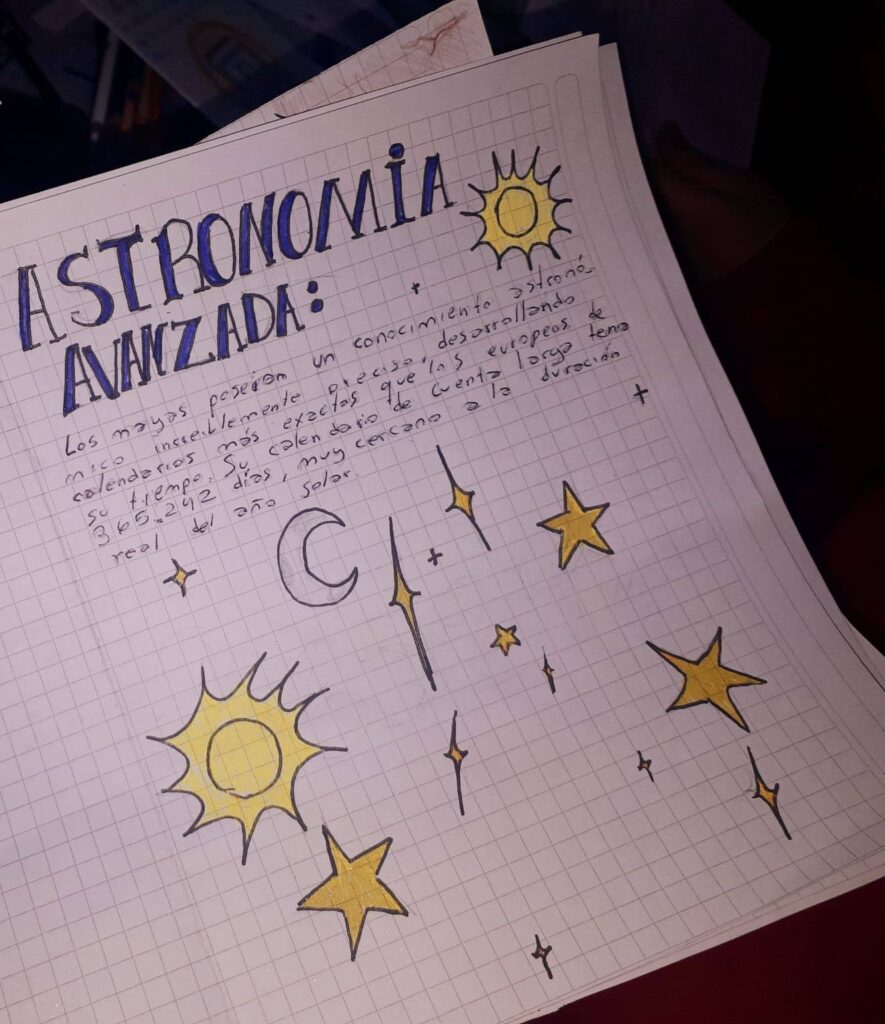 ASTRONOMiA
AVANZADA:
Los mayas poseian un conocimiento astronó-
mico increiblemente preciso, desarrollando
calendarios más exactos que los europeos de
su tiempo. Su calendario de cuenta larga tenia
365.242 días, muy cercano a la duración
real del año solar.